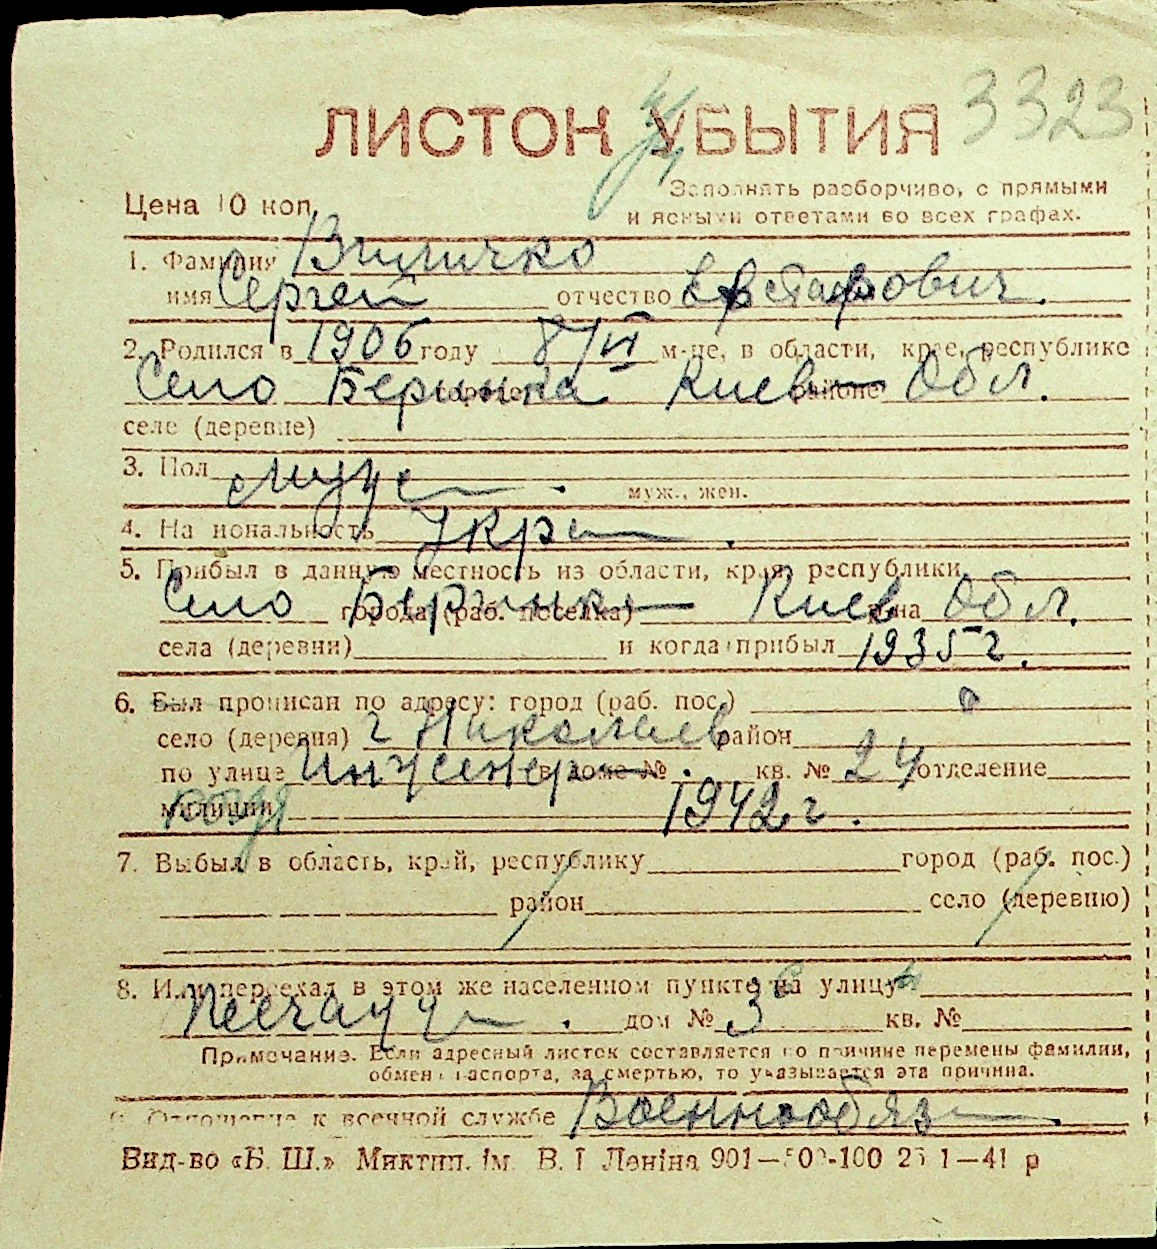 3323
ЛИСТОК УБЫТИЯ
Цена 10 коп.
Заполнять разборчиво, с прямыми
и ясными ответами во всех графах.
1. Фамилия
имя Сергей отчество Евстафович.
2. Родился в 1906 году 8/VI м-це, в области, крае, республике
Село Киев районе Обл.
селе (деревне)
3. Пол муж., жен.
4. Национальность Укра
5. Прибыл в данную местность из области, края, республики
Село города (раб. поселка) Киев Обл.
села (деревни) и когда прибыл 1935 г.
6. Был прописан по адресу: город (раб. пос.)
село (деревня) г Николаев район
по улице Инженер в доме № кв. № 24 отделение
милиции 1942 г.
7. Выбыл в область, край, республику город (раб. пос.)
район село (деревню)
8. Или переехал в этом же населенном пункте на улицу
дом № 3 кв. №
Примечание. Если адресный листок составляется по причине перемены фамилии,
обмена паспорта, за смертью, то указывается эта причина.
9. Отношение к военной службе Военнообяз
Вид-во «Б. Ш.» Миктип. ім. В. І Леніна 901—500-100 25 1—41 р